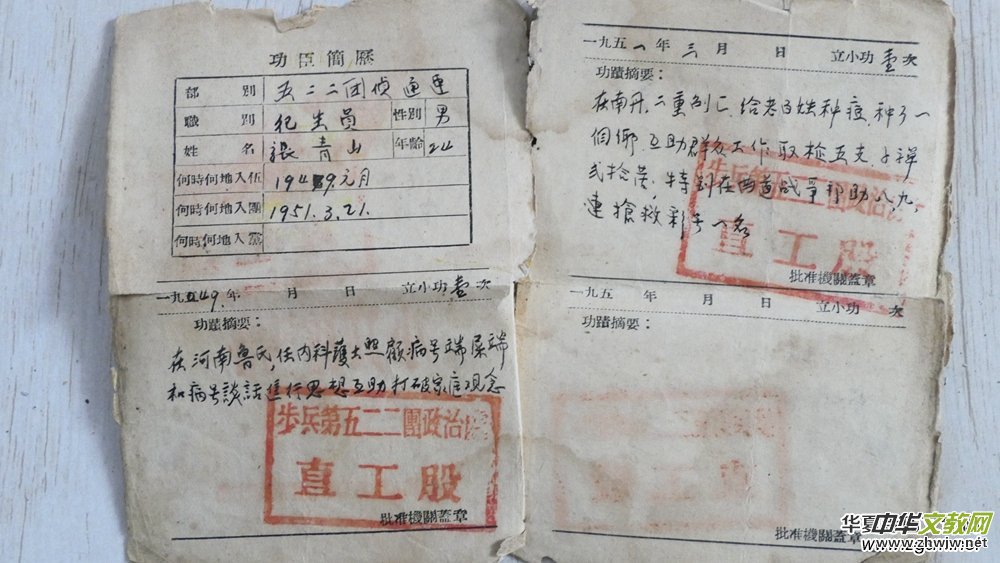 功臣簡歷
部 別 五二二团侦通連
職 別 纪生員 性別 男
姓 名 張青山 年齡 24
何時何地入伍 1949元月
何時何地入團 1951.3.21.
何時何地入黨
一九五49年 月 日 立小功壹次
功蹟摘要：
在河南鲁氏，任内科護士照顧病号端屎端
和病号談話進行思想互助打破家庭观念
步兵第五二二團政治
直工股
批准機關蓋章
一九五一年三月 日 立小功壹次
功蹟摘要：
在南丹，二重别亡，给老百姓种痘，种了一
個鄉，互助群众工作取枪五支子弹
弍拾发，特别在西道战争帮助八九，
連搶救彩号一名
步兵第五二二團政治
直工股
批准機關蓋章
一九五 年 月 日 立小功 次
功蹟摘要：
批准機關蓋章
华夏中华文教网
www.zhwjw.net